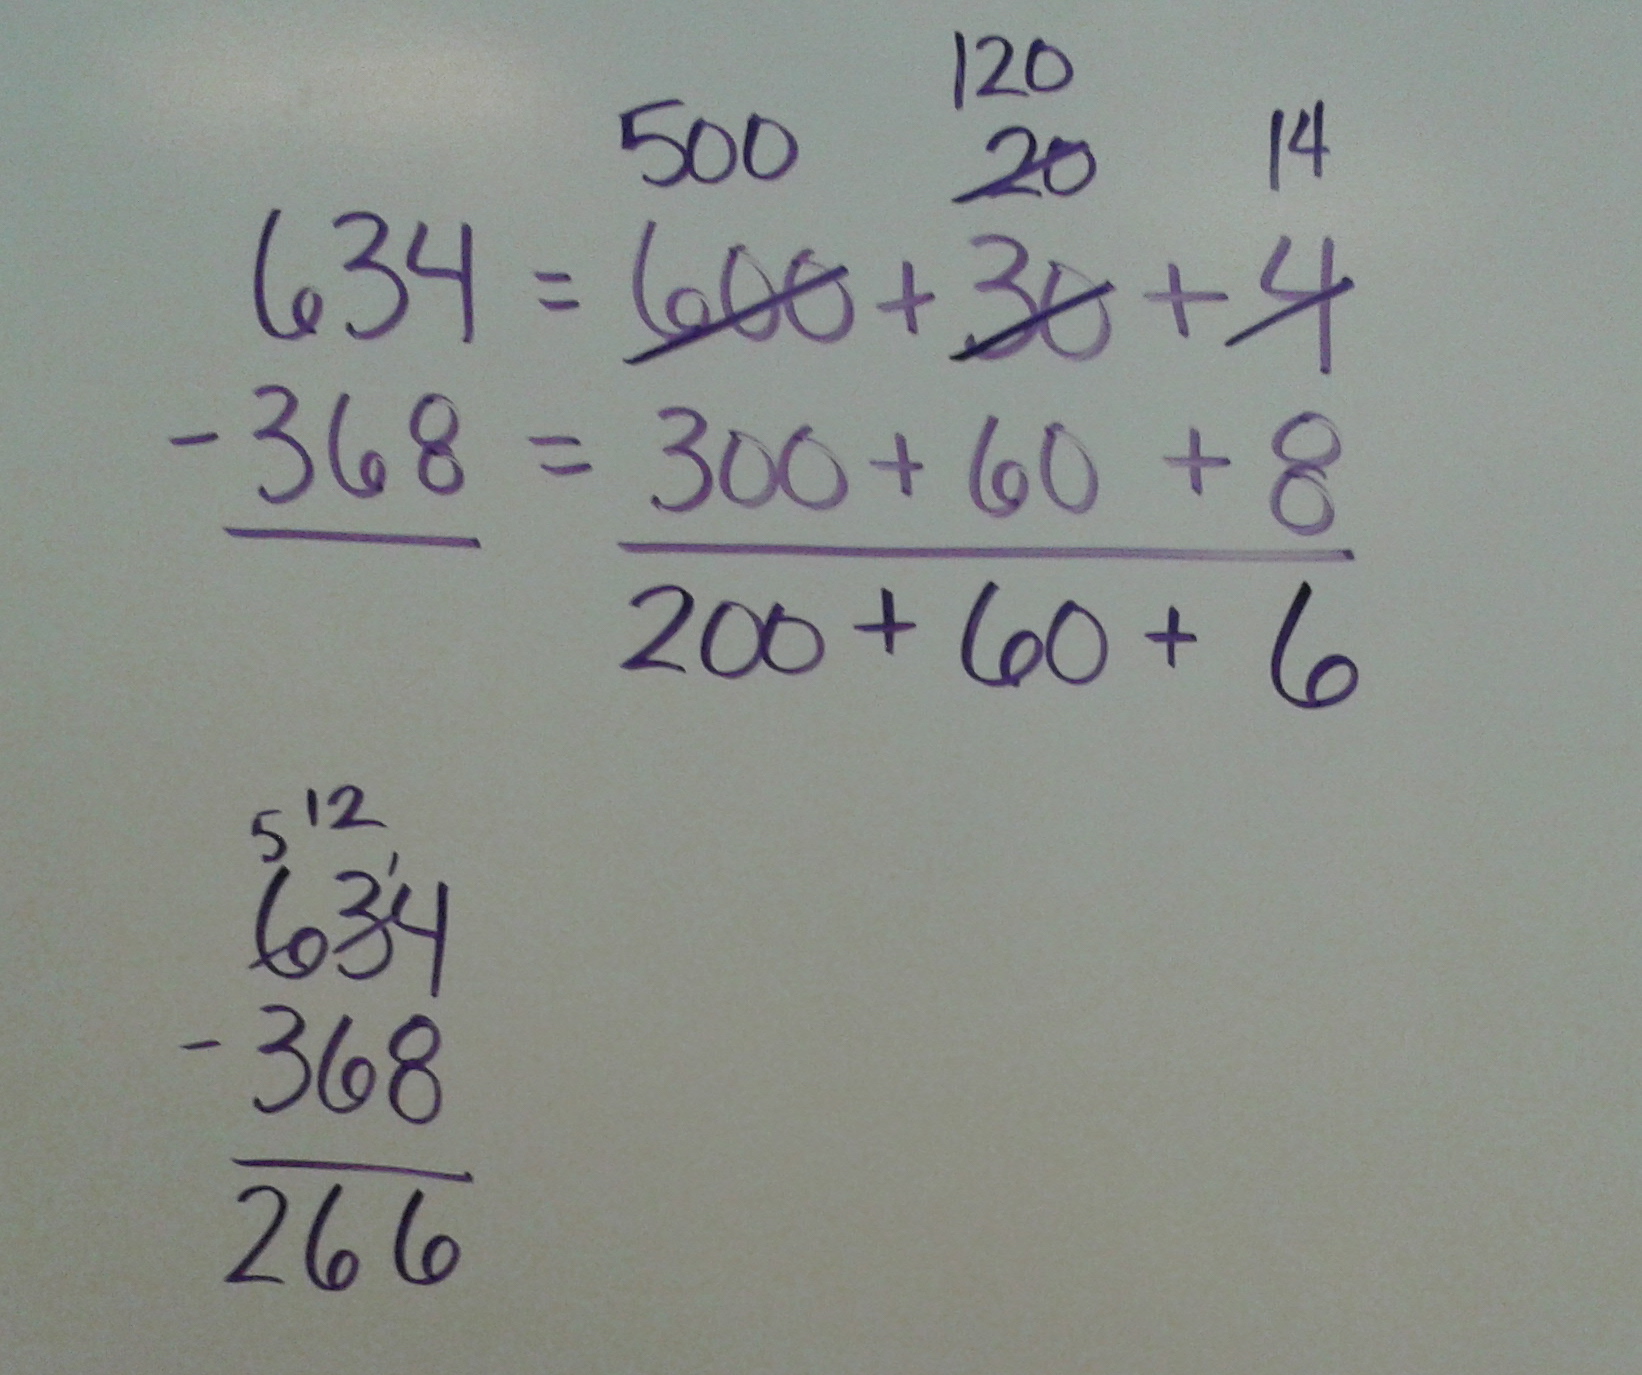 120
500 20 14
634 = 600 + 30 + 4
- 368 = 300 + 60 + 8
200 + 60 + 6
5 12
6 3 1 4
- 368
266